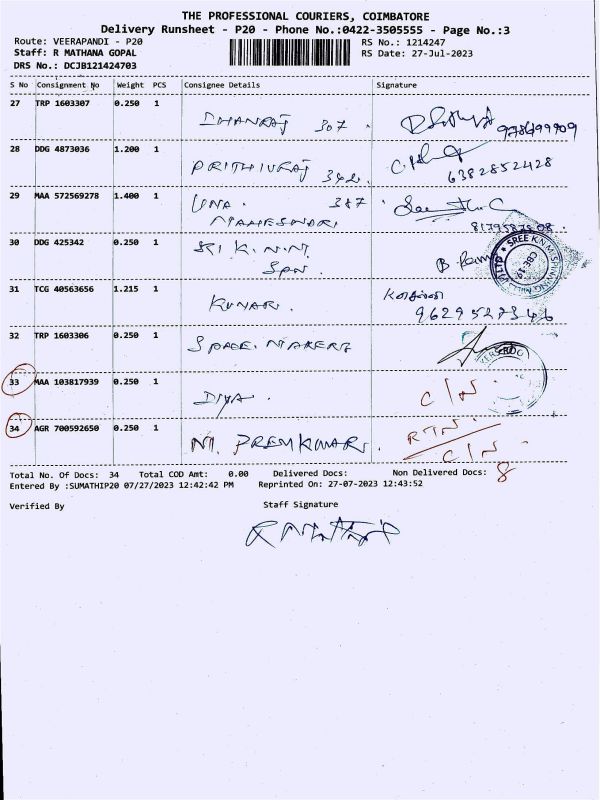 THE PROFESSIONAL COURIERS, COIMBATORE
Delivery Runsheet - P20 - Phone No.:0422-3505555 - Page No.:3
Route: VEERAPANDI - P20 RS No.: 1214247
Staff: R MATHANA GOPAL RS Date: 27-Jul-2023
DRS No.: DCJB121424703
S No Consignment No Weight PCS Consignee Details Signature
27 TRP 1603307 0.250 1
DHANRAJ 307
28 DDG 4873036 1.200 1
PRITHIVRAJ 342
6382852428
29 MAA 572569278 1.400 1
UMA 387
MAHESWARI
30 DDG 425342 0.250 1
SRI K.N.M.
SPN
31 TCG 40563656 1.215 1
KUMAR
9629527346
32 TRP 1603306 0.250 1
SPACE MAKERS
33 MAA 103817939 0.250 1
DIYA C/N
34 AGR 700592650 0.250 1
M. PREMKUMAR RTN
C/N
Total No. Of Docs: 34 Total COD Amt: 0.00 Delivered Docs: Non Delivered Docs: 8
Entered By :SUMATHIP20 07/27/2023 12:42:42 PM Reprinted On: 27-07-2023 12:43:52
Verified By Staff Signature